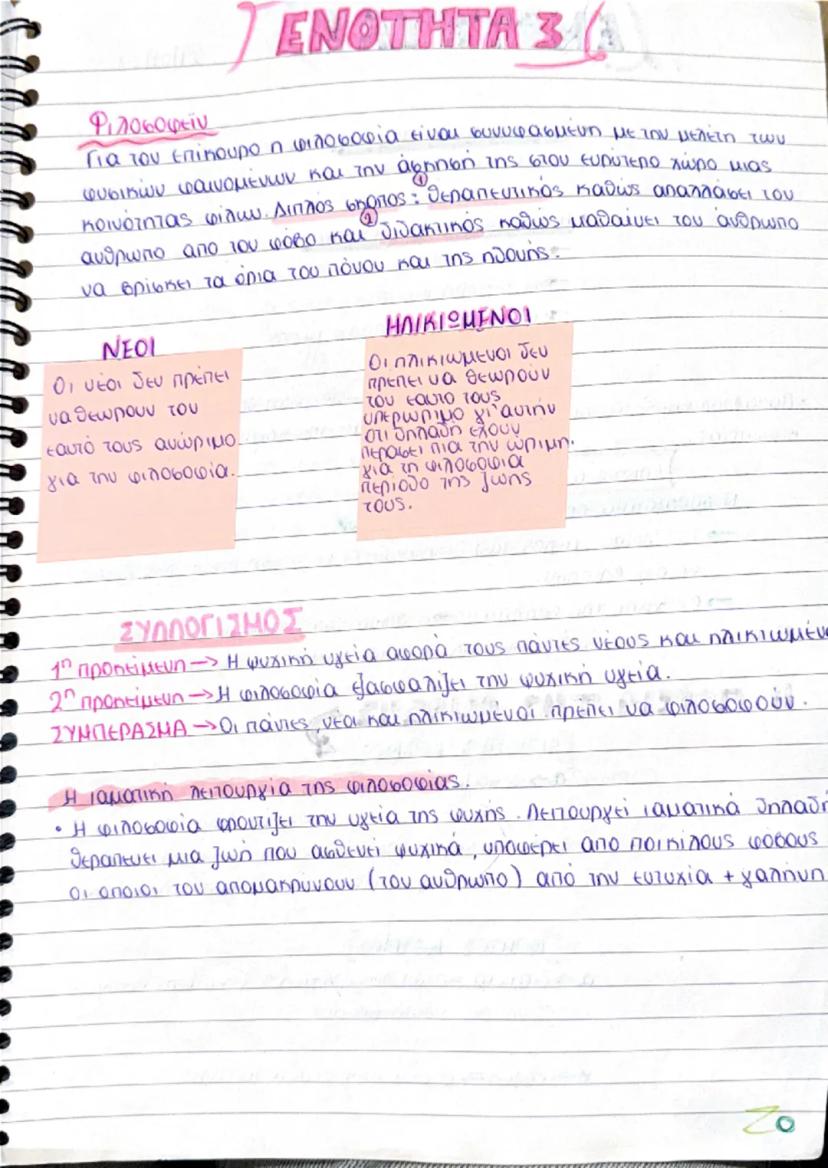 ΕΝΟΤΗΤΑ 3
Φιλοσοφείν
Για τον επίκουρο η φιλοσοφία είναι συνυφασμένη με την μελέτη των
φυσικών φαινομένων και την άσκηση της στον ευρύτερο χώρο μιας
κοινότητας φίλων. Διπλός σκοπός: ① θεραπευτικός καθώς απαλλάσει τον
ανθρωπο από τον φόβο και ② διδακτικός καθώς μαθαίνει τον άνθρωπο
να βρίσκει τα όρια του πόνου και της ηδονής.
ΝΕΟΙ
Οι νέοι δεν πρέπει
να θεωρουν τον
εαυτό τους ανώριμο
για την φιλοσοφία.
ΗΛΙΚΙΩΜΕΝΟΙ
Οι ηλικιωμενοι δεν
πρεπει να θεωρούν
τον εαυτο τους
υπερωριμο γι'αυτην
ότι δηλαδή έχουν
περασει πια την ώριμη.
για τη φιλοσοφια
περίοδο της ζωης
τους.
ΣΥΛΛΟΓΙΣΜΟΣ
1η προκείμενη → Η ψυχική υγεία αφορά τους πάντες νέους και ηλικιωμένο
2η προκείμενη → Η φιλοσοφία εξασφαλίζει την ψυχική υγεία.
ΣΥΜΠΕΡΑΣΜΑ → Οι πάντες, νέοι και ηλικιωμενοι πρέπει να φιλοσοφούν.
Η ιαματική λειτουργία της φιλοσοφίας.
• Η φιλοσοφία φροντιζει την υγεία της ψυχής. Λειτουργεί ιαματικά δηλαδή
θεραπευει μια ζωή που ασθενεί ψυχικά, υποφέρει από ποικίλους φόβους
οι οποιοι τον απομακρύνουν (τον ανθρωπο) από την ευτυχία + γαλήνη
20